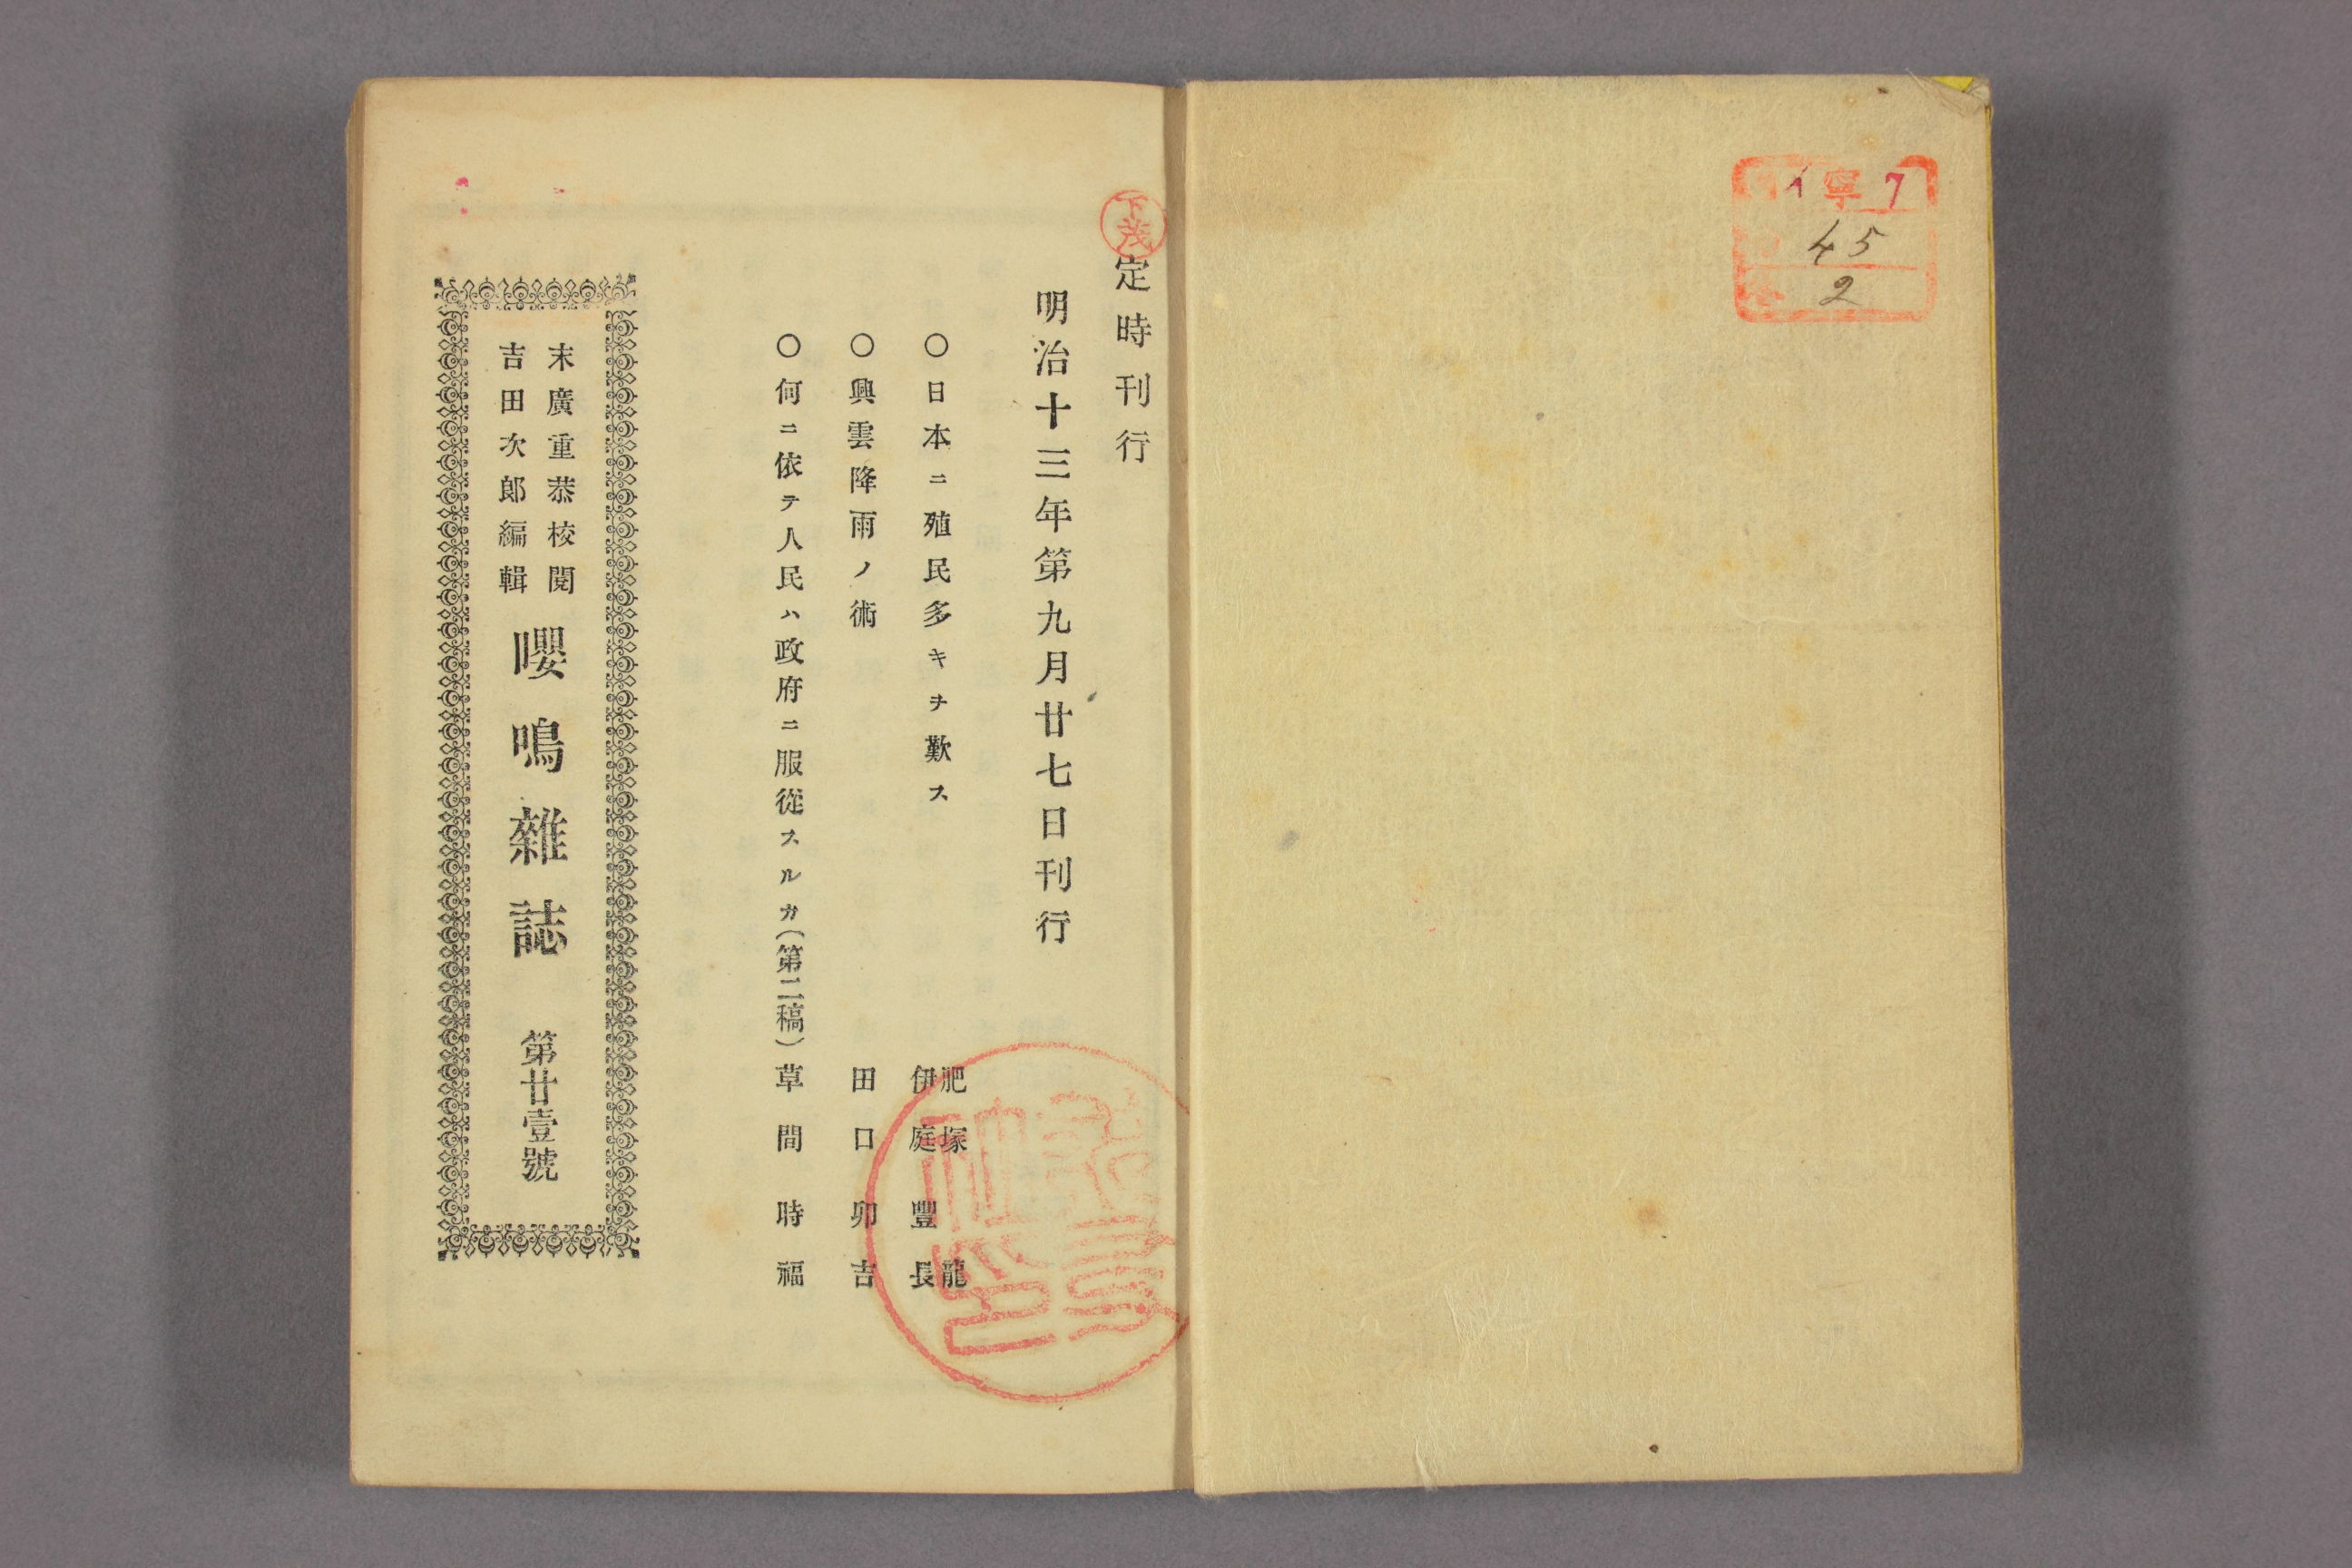 寧 7
45
2
下茂
定時刊行
明治十三年第九月廿七日刊行
〇日本ニ殖民多キヲ歎ス 肥塚龍
伊庭豐長
〇興雲降雨ノ術 田口卯吉
〇何ニ依テ人民ハ政府ニ服從スルカ(第二稿)草間時福
末廣重恭校閱
吉田次郎編輯
嚶鳴雜誌 第廿壹號